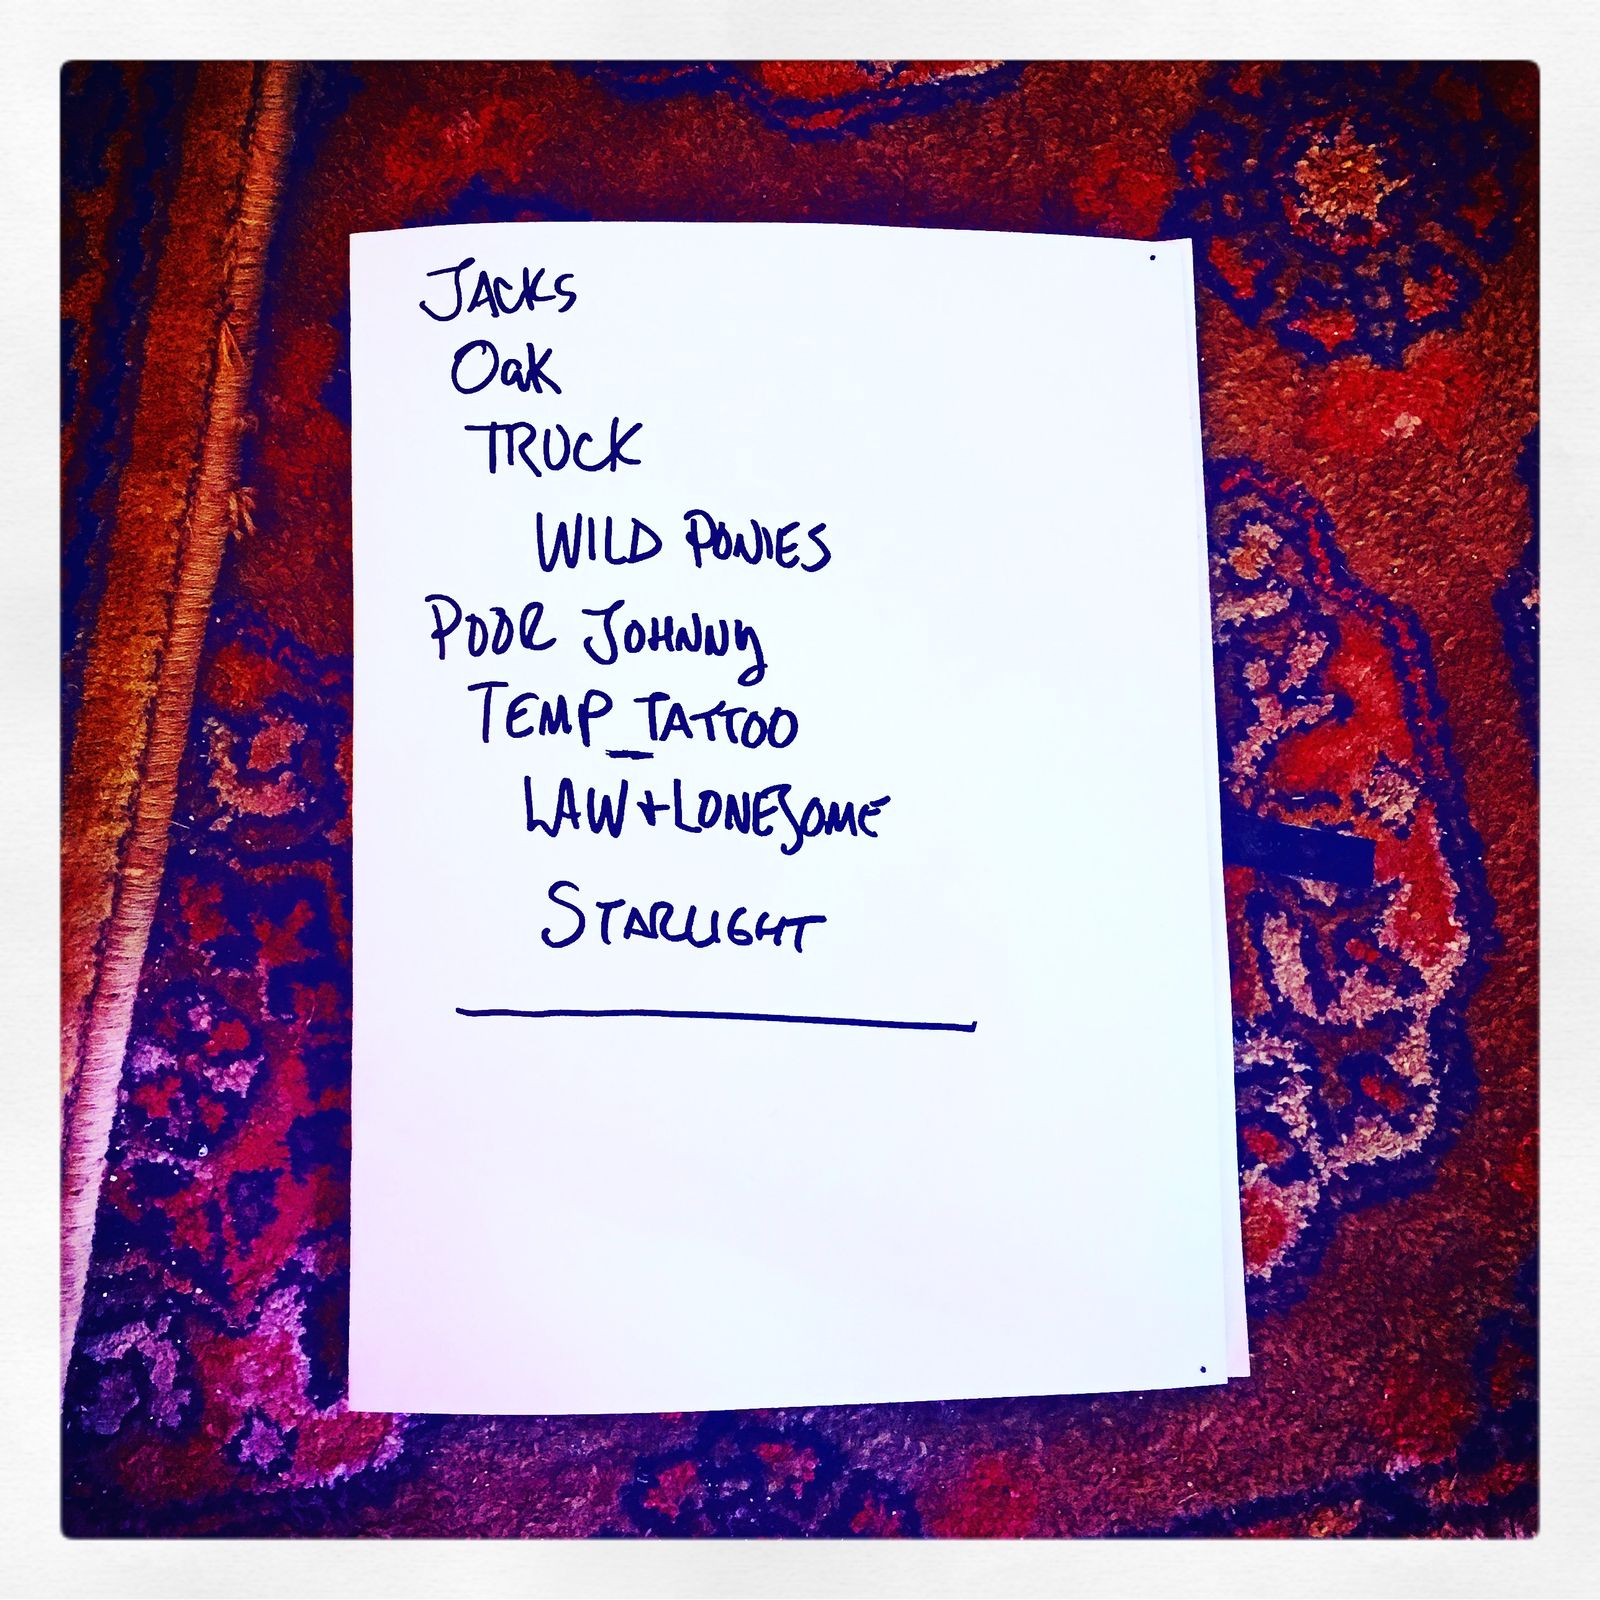 JACKS
Oak
TRUCK
WILD PONIES
POOR JOHNNY
TEMP_TATTOO
LAW + LONESOME
STARLIGHT